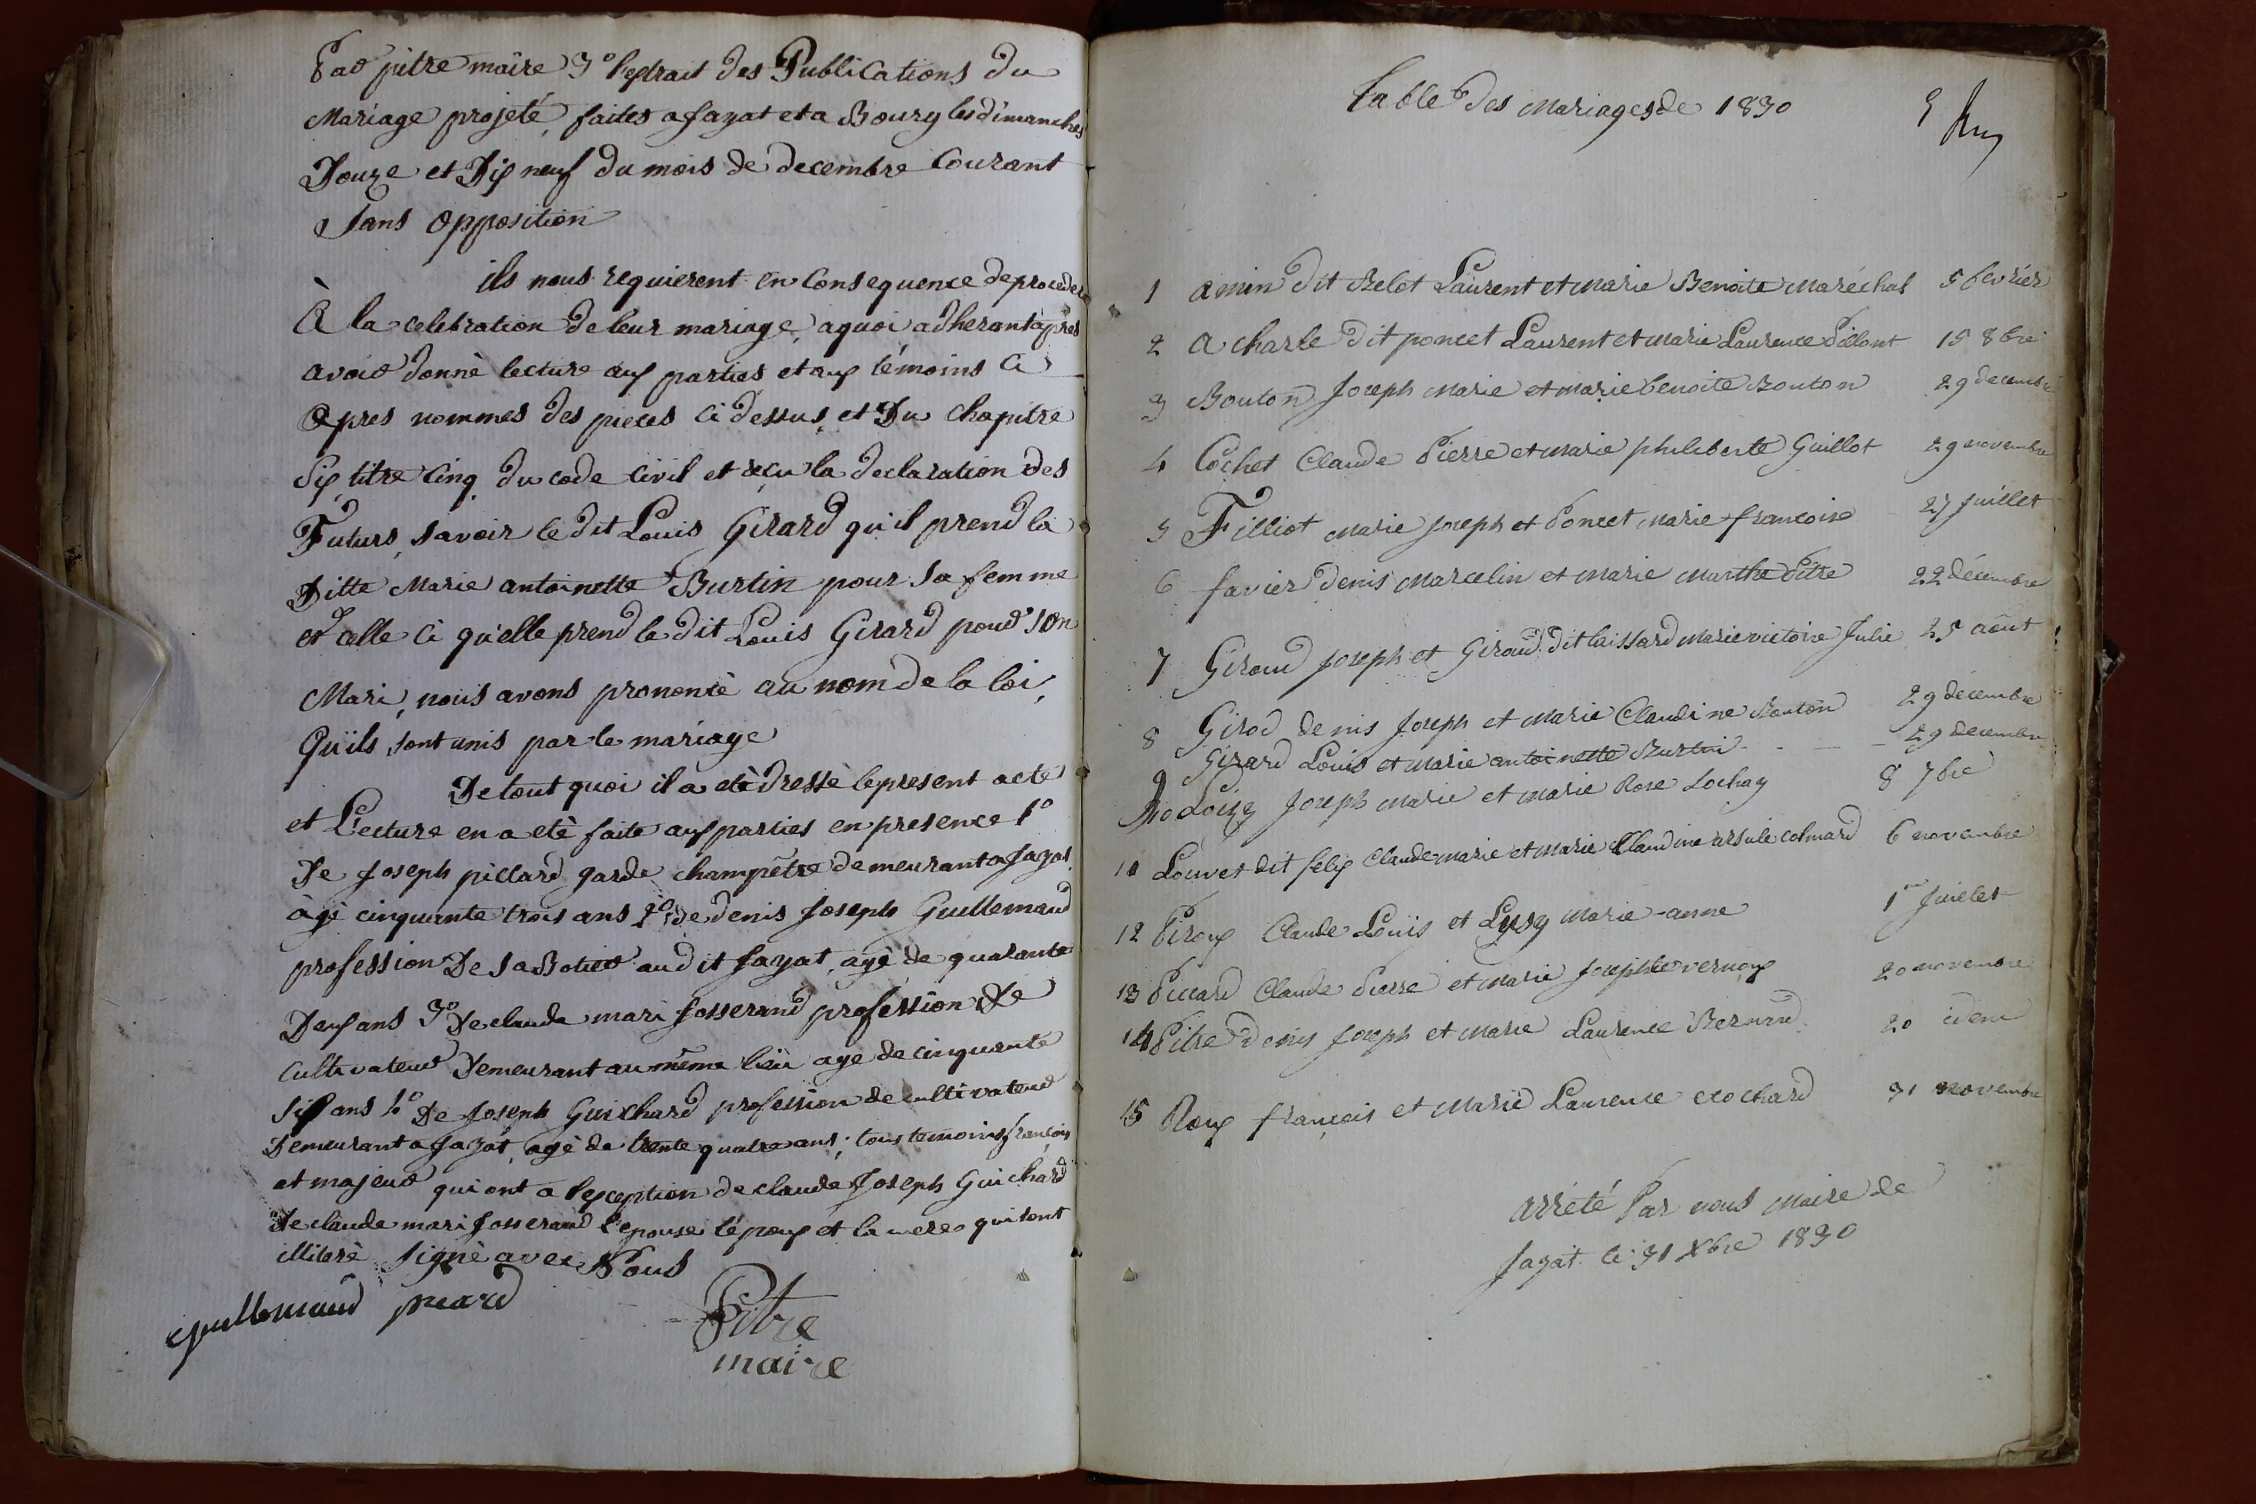 par pitre maire 3° l'extrait des Publications du
Mariage projeté, faites a fayat et a Bourg les dimanches
Douze et Dix neuf du mois de decembre Courant
Sans opposition
ils nous requierent en Consequence de proceder
À la celebration de leur mariage, aquoi adherant après
avoir donnè lecture aux parties et aux témoins Ci
apres nommes des pieces Ci dessus, et Du Chapitre
Six titre Cinq du code Civil et reçu la declaration des
Futurs, savoir le dit Louis Girard qu'il prend la
Ditte Marie antoinette Burtin pour sa femme
et celle Ci qu'elle prend le dit Louis Girard pour son
Mari, nous avons prononcè au nom de la loi,
Qu'ils sont unis par le mariage
De tout quoi il a etè dressè le present acte
et Lecture en a etè faite aux parties en presence 1°
De Joseph pillard garde champêtre demeurant a Jayat
àgè cinquante trois ans 2° de denis Joseph Guillemaud
profession De Sabotier audit Jayat, agè de quarante
Deux ans 3° De claude mari Josserand profession De
Cultivateur Demeurant au même lieu age de cinquante
Six ans 4° De Joseph Guichard profession de cultivateur
Demeurant a Jayat, agè de trente quatre ans; tous temoins françois
et majeur qui ont a l'exception de claude Joseph Guichard
de claude mari Josserand l'epouse l'époux et la mere qui sont
illiterè Signè avec Nous
guillemaud picard
Pitre
maire
table des Mariages de 1830
1 amin dit Belot Laurent et Marie Benoite Maréchal 5 fevrier
2 a charle dit poncet Laurent et Marie Laurence Pillont 15 8bre
3 Bouton Joseph Marie et Marie benoite Bouton 29 decembre
4 Cochet Claude Pierre et Marie philiberte Guillot 29 novembre
5 Filliot Marie Joseph et Poncet Marie francoise 27 juillet
6 favier denis Marcelin et Marie Marthe Pitre 22 décembre
7 Giroud Joseph et Giraud dit laissard Marie victoire Julie 25 août
8 Girod denis Joseph et Marie Claudine Bouton 29 décembre
9 Girard Louis et Marie antoinette Burtin 29 decembre
10 Loizy Joseph Marie et Marie Rose Lochay 8 7bre
11 Louvet dit felix Claude Marie et Marie Claudine ursule colmard 6 novembre
12 Piroux Claude Louis et Lysy Marie-anne 1er Juillet
13 Pillard Claude Pierre et Marie Josephte vernoux 20 novembre
14 Pitre denis Joseph et Marie Laurence Bernard 20 idem
15 Roux françois et Marie Laurence crochard 31 novembre
arrété Par nous Maire de
Jayat le 31 Xbre 1830